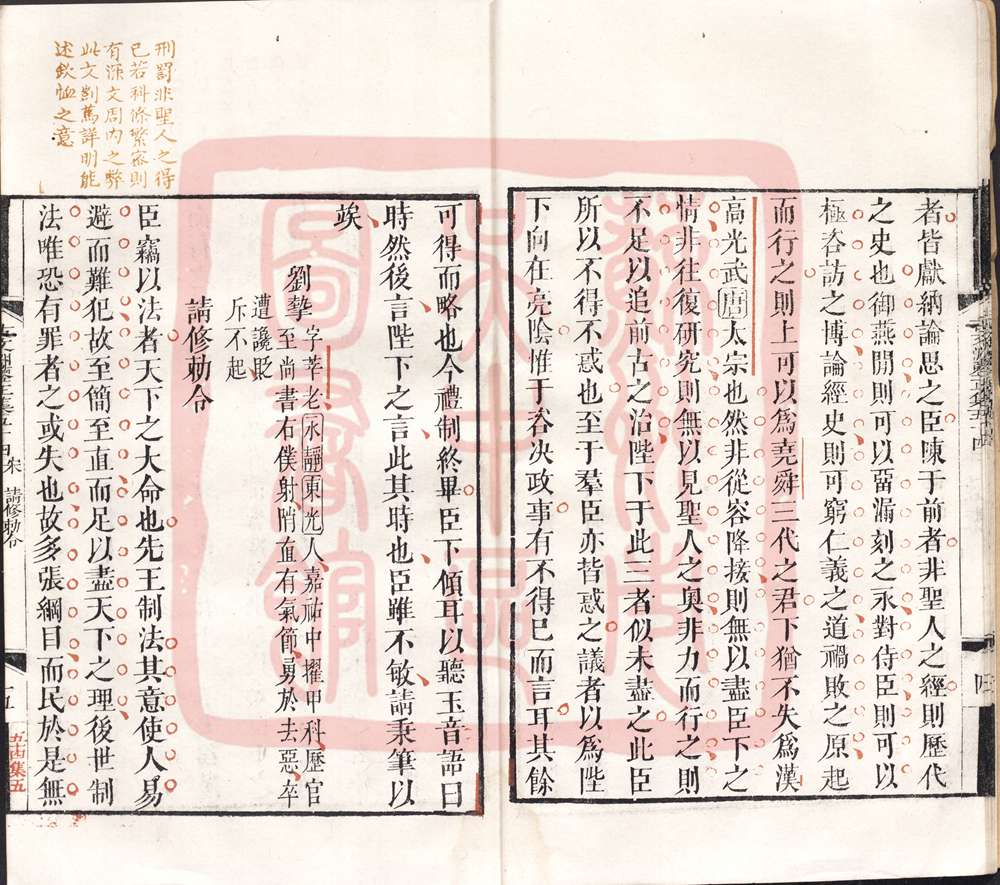 者皆獻納論思之臣陳于前者非聖人之經則歷代
之史也御燕閒則可以留漏刻之永對侍臣則可以
極咨訪之博論經史則可窮仁義之道禍敗之原起
而行之則上可以爲堯舜三代之君下猶不失爲漢
高光武唐太宗也然非從容降接則無以盡臣下之
情非往復研究則無以見聖人之奥非力而行之則
不足以追前古之治陛下于此三者似未盡之此臣
所以不得不惑也至于羣臣亦皆惑之議者以爲陛
下向在亮陰惟于咨決政事有不得已而言耳其餘
可得而略也今禮制終畢臣下傾耳以聽玉音語曰
時然後言陛下之言此其時也臣雖不敏請秉筆以
竢
劉摯字莘老永靜東光人嘉祐中擢甲科歷官
至尚書右僕射陗直有氣節勇於去惡卒
遭讒貶
斥不起
請修勅令
臣竊以法者天下之大命也先王制法其意使人易
避而難犯故至簡至直而足以盡天下之理後世制
法唯恐有罪者之或失也故多張綱目而民於是無
刑罰非聖人之得
已若科條繁密則
有深文周内之弊
此文剴篤詳明能
述欽恤之意
宋 請修勅令
五古集五